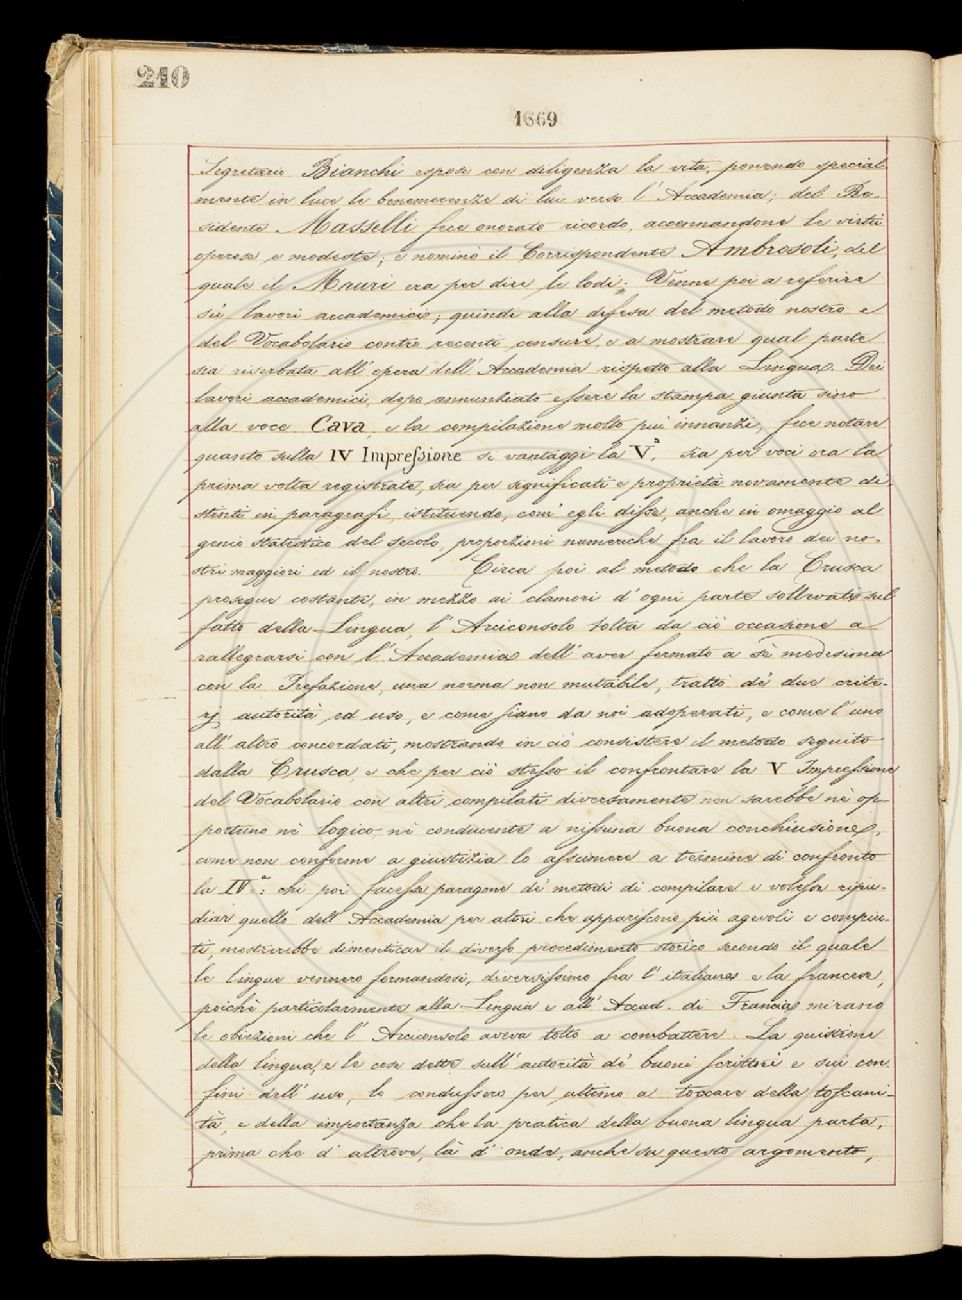 240
1869
Segretario Bianchi espose con diligenza la vita, ponendo special
mente in luce le benemerenze di lui verso l'Accademia; del Re-
sidente Masselli fece onorato ricordo, accennandone le virtù
operose e modeste; e nominò il Corrispondente Ambrosoli, del
quale il Mauri era per dire le lodi. Venne poi a referire
su' lavori accademici; quindi alla difesa del metodo nostro e
del Vocabolario contro recenti censure, e a mostrare qual parte
sia riserbata all'opera dell'Accademia rispetto alla Lingua. Dei
lavori accademici, dopo annunziato essere la stampa giunta sino
alla voce Cava, e la compilazione molto più innanzi, fece notare
quanto sulla IV Impreſsione si vantaggi la Vª, sia per voci ora la
prima volta registrate, sia per significati e proprietà novamente di-
stinti in paragrafi, istituendo, com'egli diſse, anche in omaggio al
genio statistico del secolo, proporzioni numeriche fra il lavoro dei no-
stri maggiori ed il nostro. Circa poi al metodo che la Crusca
prosegue costante, in mezzo ai clamori d'ogni parte sollevatisi sul
fatto della Lingua, l'Arciconsolo tolse da ciò occasione a
rallegrarsi con l'Accademia dell'aver fermato a sè medesima
con la Prefazione, una norma non mutabile, tratta de' due crite-
rj autorità ed uso, e come siano da noi adoperati, e come l'uno
all'altro concordati, mostrando in ciò consistere il metodo seguito
dalla Crusca, e che per ciò steſso il confrontare la V Impreſsione
del Vocabolario con altri compilati diversamente non sarebbe nè op-
portuno nè logico nè conducente a niſsuna buona conchiusione,
come non conforme a giustizia lo aſsumere a termine di confronto
la IVª: chi poi faceſse paragone de' metodi di compilare e voleſse ripu-
diar quello dell'Accademia per altri che appariſcono più agevoli e compiu-
ti, mostrerebbe dimenticar il diverſo procedimento storico secondo il quale
le lingue vennero formandosi, diversiſsimo fra l'italiana e la francese,
poichè particolarmente alla Lingua e all'Accad. di Francia mirano
le obiezioni che l'Arciconsolo aveva tolto a combattere. La quistione
della lingua, e le cose dette sull'autorità de' buoni ſcrittori e sui con
fini dell'uso, lo conduſsero per ultimo a toccare della toſcani-
tà, e della importanza che la pratica della buona lingua parta,
prima che d'altrove, là d'onde, anche su questo argomento,